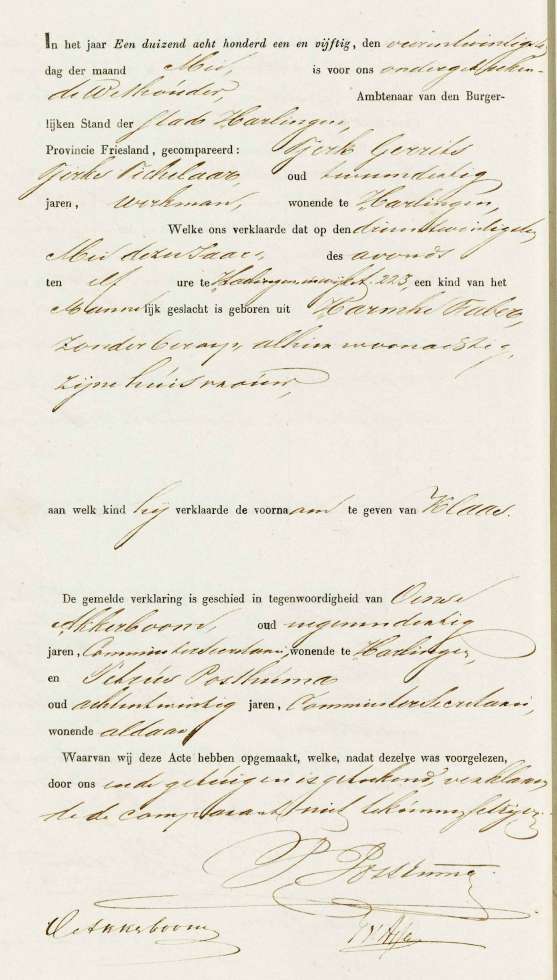 In het jaar Een duizend acht honderd een en vijftig, den vierentwintigste
dag der maand Mei, is voor ons ondergeteeken-
de Wethouder, Ambtenaar van den Burger-
lijken Stand der Stad Harlingen,
Provincie Friesland, gecompareerd: Tjerk Gerrits
Tjerks Tichelaar, oud tweeendertig
jaren, werkman, wonende te Harlingen,
Welke ons verklaarde dat op den drieentwintigsten
Mei dezes Jaars, des avonds
ten elf ure te Harlingen in wijk 223, een kind van het
Mannelijk geslacht is geboren uit Harmke Faber,
zonder beroep, alhier woonachtig,
zijne huisvrouw,
aan welk kind hij verklaarde de voornaam te geven van Klaas.
De gemelde verklaring is geschied in tegenwoordigheid van
Akkerboom, oud negenendertig
jaren, Commies ter Secretarie, wonende te Harlingen,
en Posthuma
oud achtentwintig jaren, Commies ter Secretarie,
wonende aldaar
Waarvan wij deze Acte hebben opgemaakt, welke, nadat dezelve was voorgelezen,
door ons en de getuigen is geteekend, verklaren-
de de comparant niet te kunnen schrijven.
P Posthuma
Akkerboom